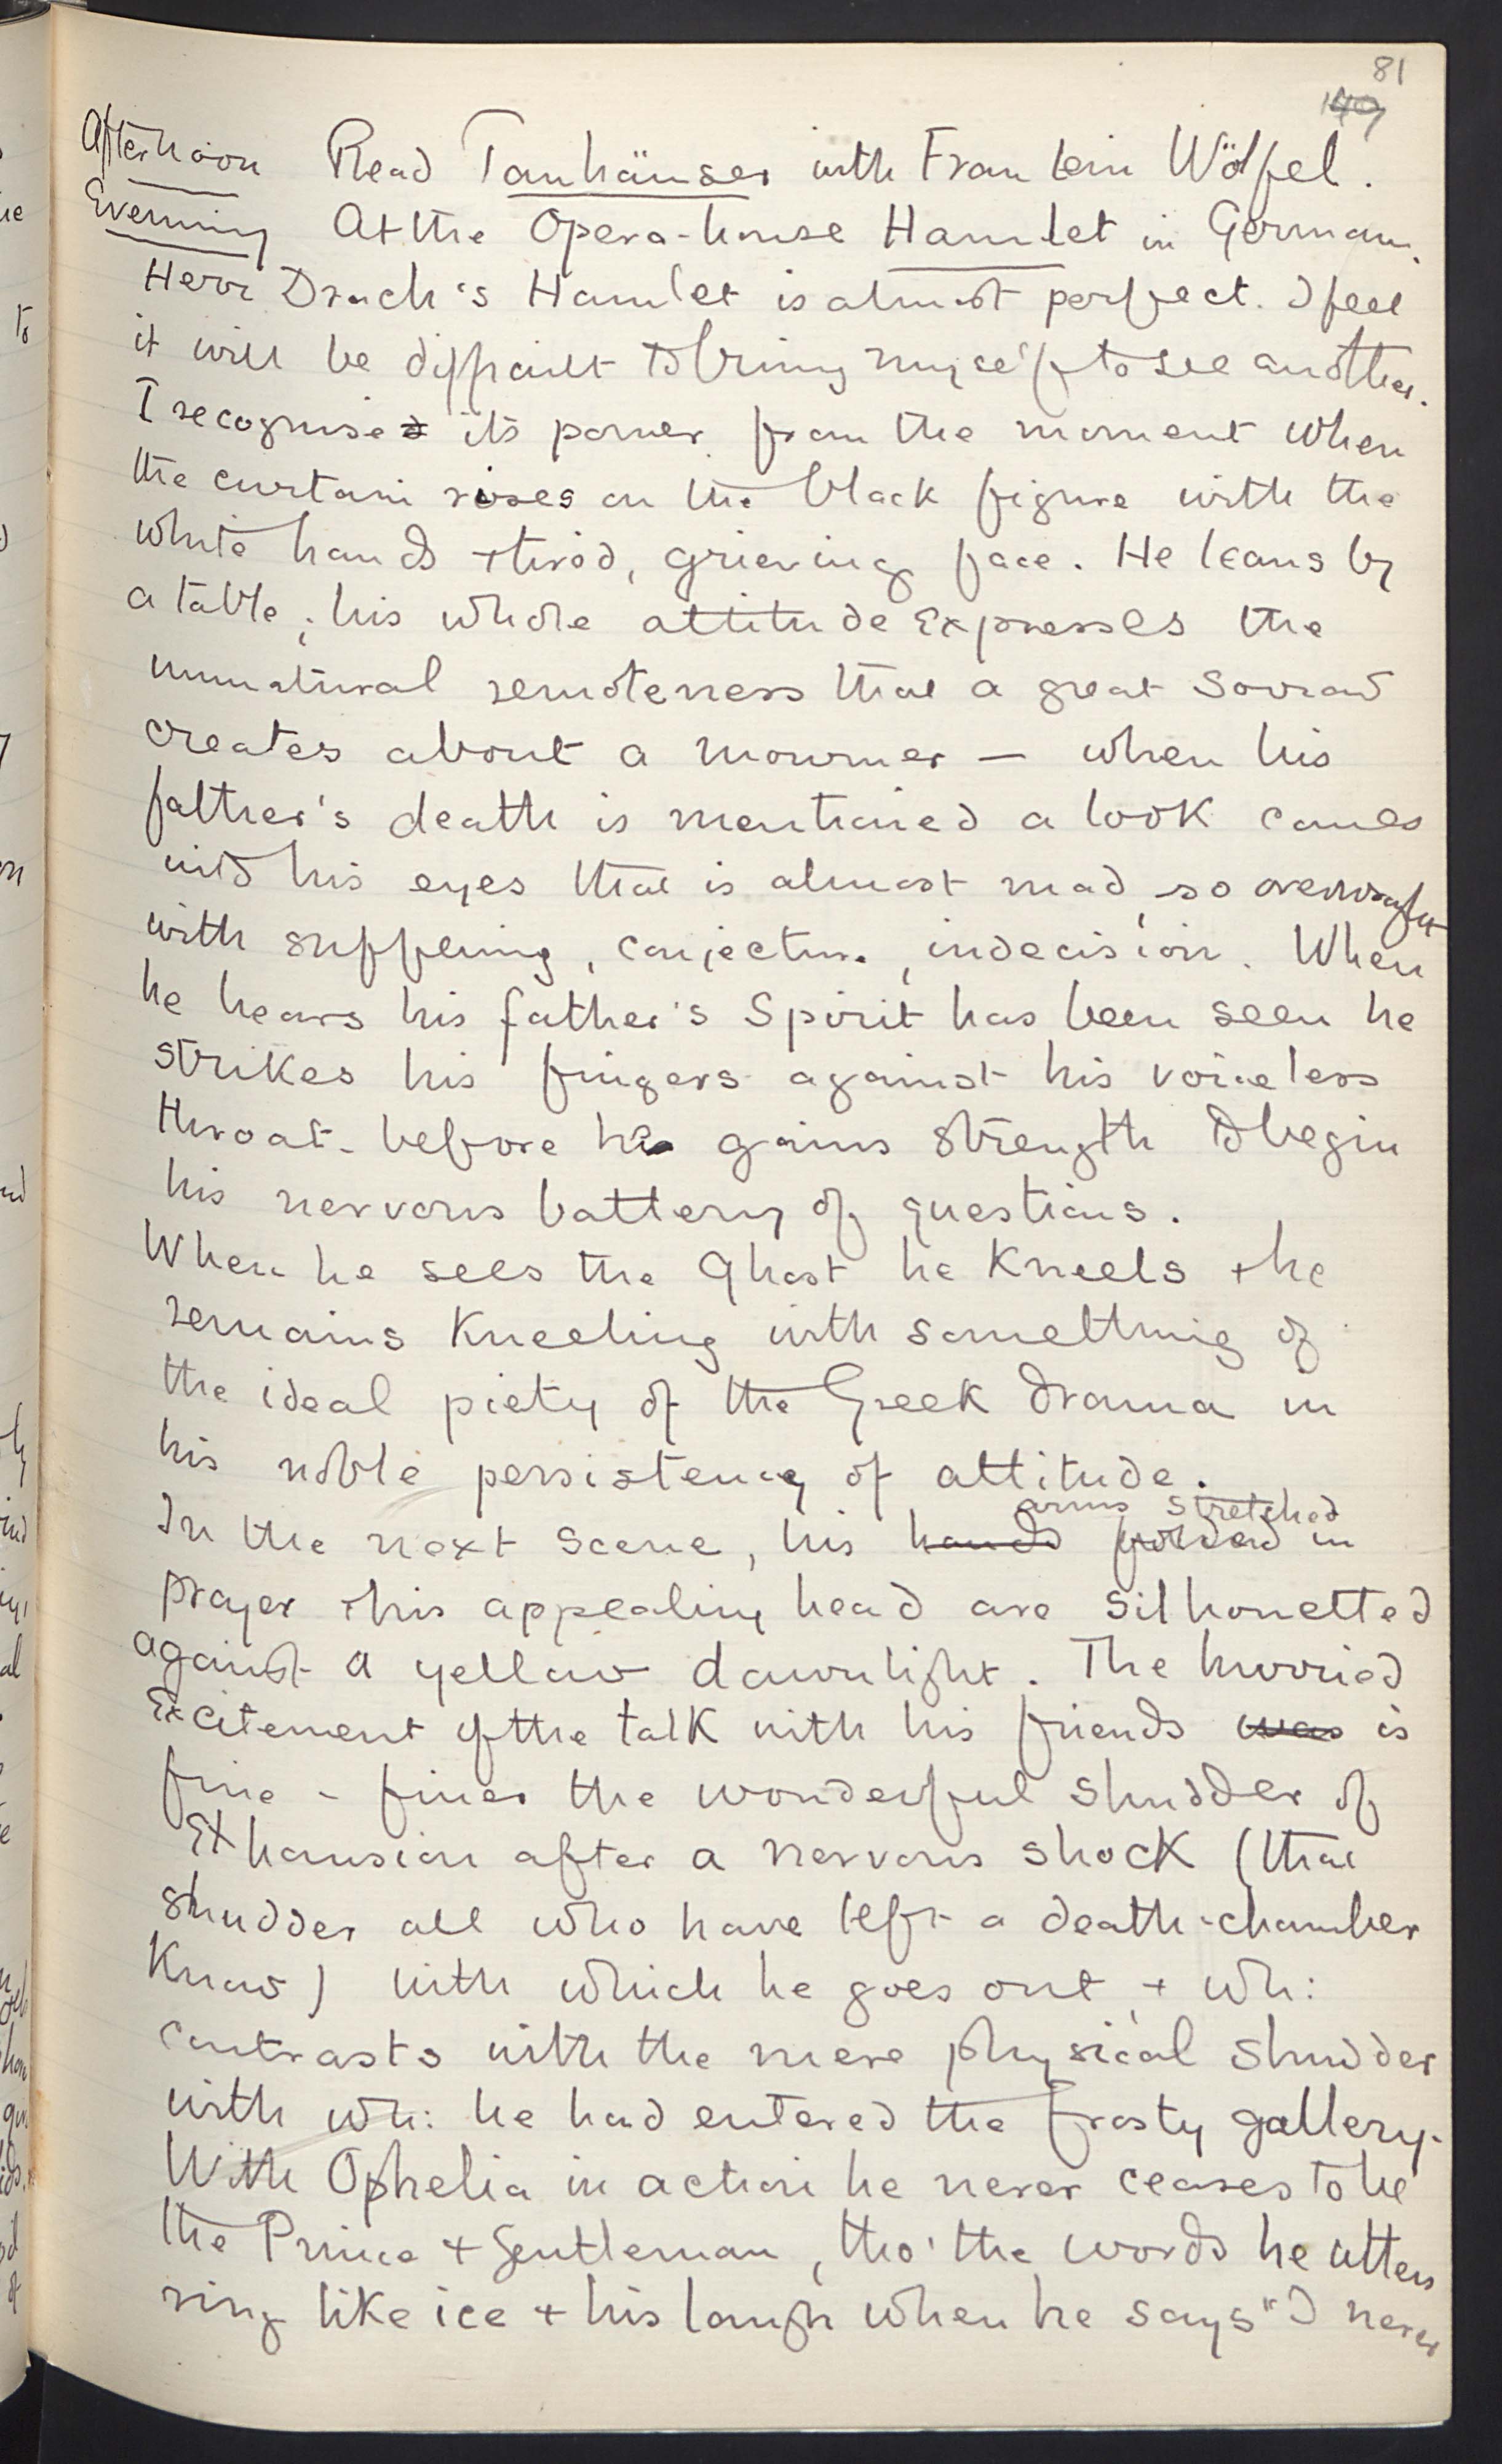 81
149
Afternoon Read Tanhäuser with Fraulein Wölfel.
Evening At the Opera-house Hamlet in German.
Herr Drach's Hamlet is almost perfect. I feel
it will be difficult to bring myself to see another.
I recognise its power from the moment when
the curtain rises on the black figure with the
white hands + tired, grieving face. He leans by
a table; his whole attitude expresses the
unnatural remoteness that a great sorrow
creates about a mourner — when his
father's death is mentioned a look comes
into his eyes that is almost mad, so overwrought
with suffering, conjecture, indecision. When
he hears his father's Spirit has been seen he
strikes his fingers against his voiceless
throat - before he gains strength to begin
his nervous battery of questions.
When he sees the Ghost he kneels + he
remains kneeling with something of
the ideal piety of the Greek drama in
his noble persistency of attitude.
arms stretched
In the next scene, his hands folded in
prayer + his appealing head are silhouetted
against a yellow dawnlight. The hurried
Excitement of the talk with his friends was is
fine - finer the wonderful shudder of
Exhaustion after a nervous shock (that
shudder all who have left a death-chamber
know) with which he goes out, + wh:
contrasts with the mere physical shudder
with wh: he had entered the frosty gallery.
With Ophelia in action he never ceases to be
the Prince + Gentleman, tho' the words he utters
ring like ice + his laugh when he says "I never